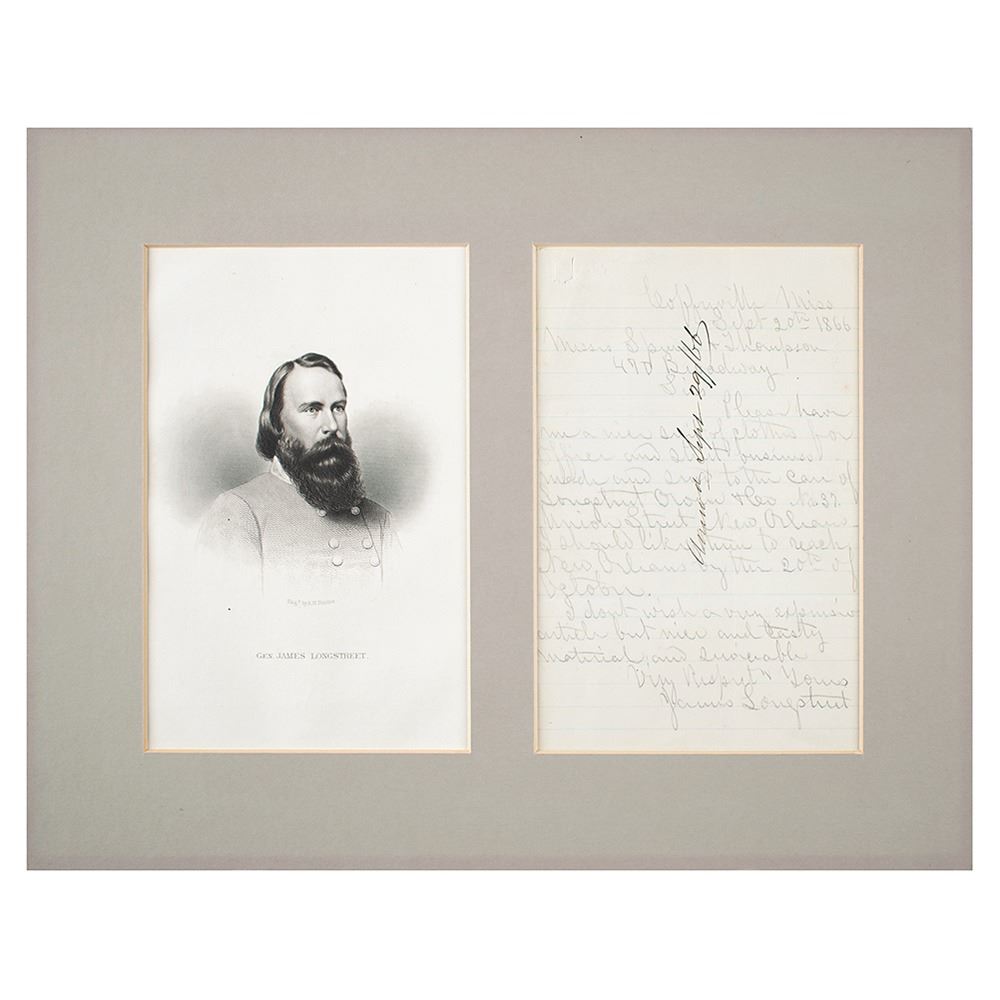 GEN. JAMES LONGSTREET.
Miss
Sept 20th 1866
Messrs & Thompson
470 Broadway
Please have
me a nice of clothes for
and business
made and to the care of
Longstreet Owen & Co No 37
Union Street New Orleans
I should like them to reach
New Orleans by the 20th of
October.
I dont wish a very expensive
article but nice and tasty
material, and serviceable
Very Respect Yours
James Longstreet
Sept 29/66